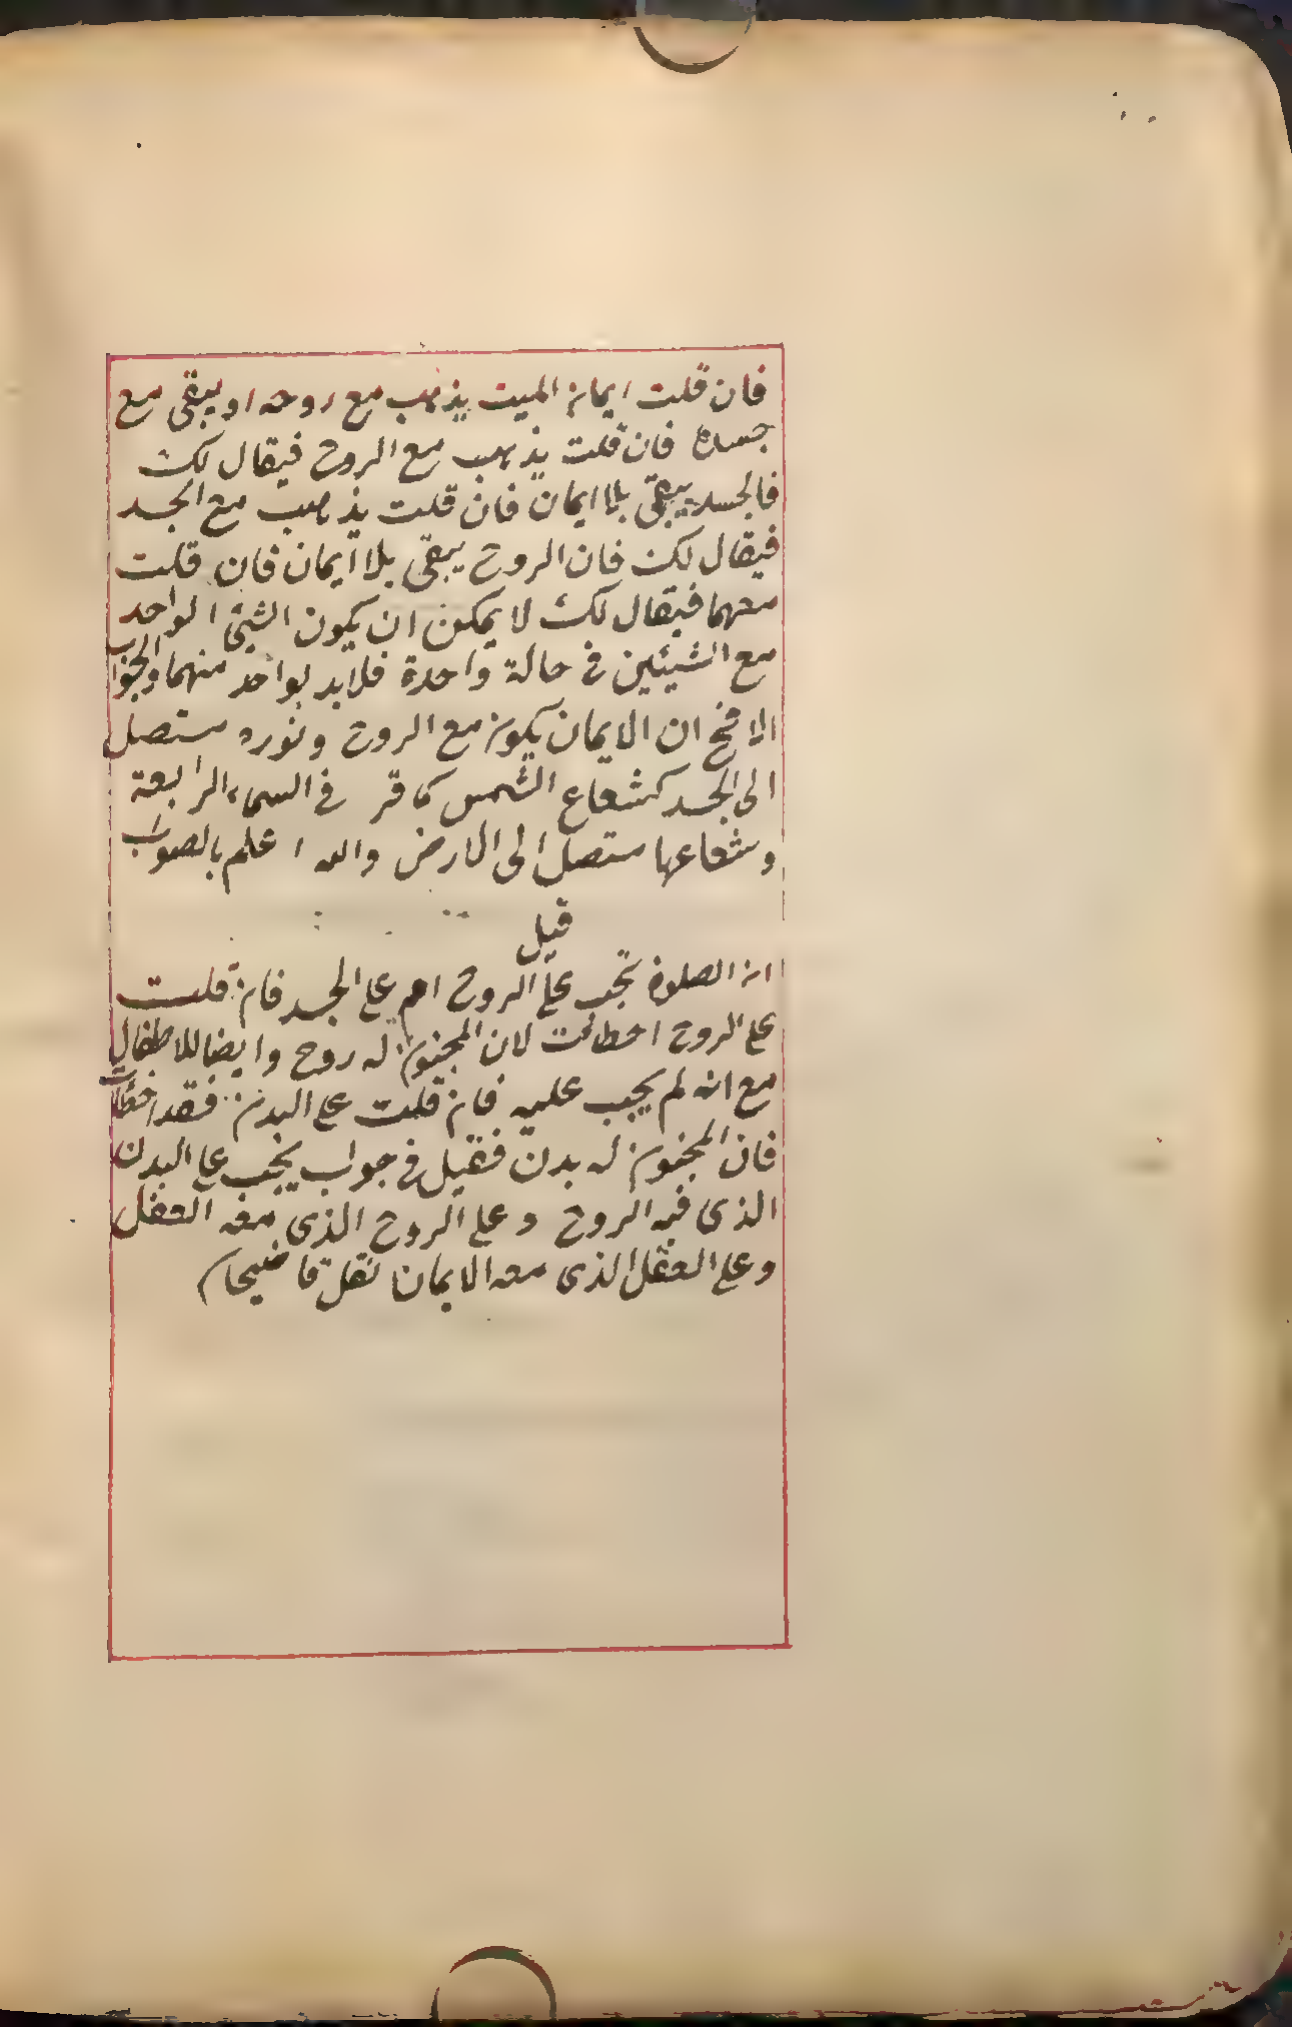 فان قلت ايمان الميت يذهب مع روحه او يبقى مع
جسده فان قلت يذهب مع الروح فيقال لك
فالجسد يبقى بلا ايمان فان قلت يذهب مع الجسد
فيقال لك فان الروح يبقى بلا ايمان فان قلت
معهما فيقال لك لا يمكن ان يكون الشئ الواحد
مع الشيئين فى حالة واحدة فلابد بواحد منهما والجواب
ان الايمان يكون مع الروح ونوره متصل
الى الجسد كشعاع الشمس فى السماء الرابعة
وشعاعها متصل الى الارض والله اعلم بالصواب
قيل
ان الصلوة تجب على الروح ام على الجسد فان قلت
على الروح اخطائت لان المجنون له روح وايضا للاطفال
مع انه لم يجب عليه فان قلت على البدن فقد اخطات
فان المجنون له بدن فقيل فى جواب يجب على البدن
الذى فيه الروح وعلى الروح الذى معه العقل
وعلى العقل الذى معه الايمان نقل قاضيخان